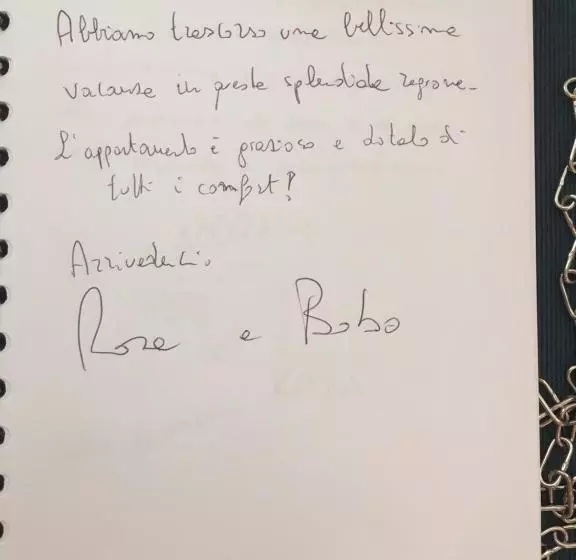 Abbiamo trascorso una bellissima
vacanza in questa splendida regione.
L'appartamento è grazioso e dotato di
tutti i comfort!
Arrivederci.
Rosa e Bobo